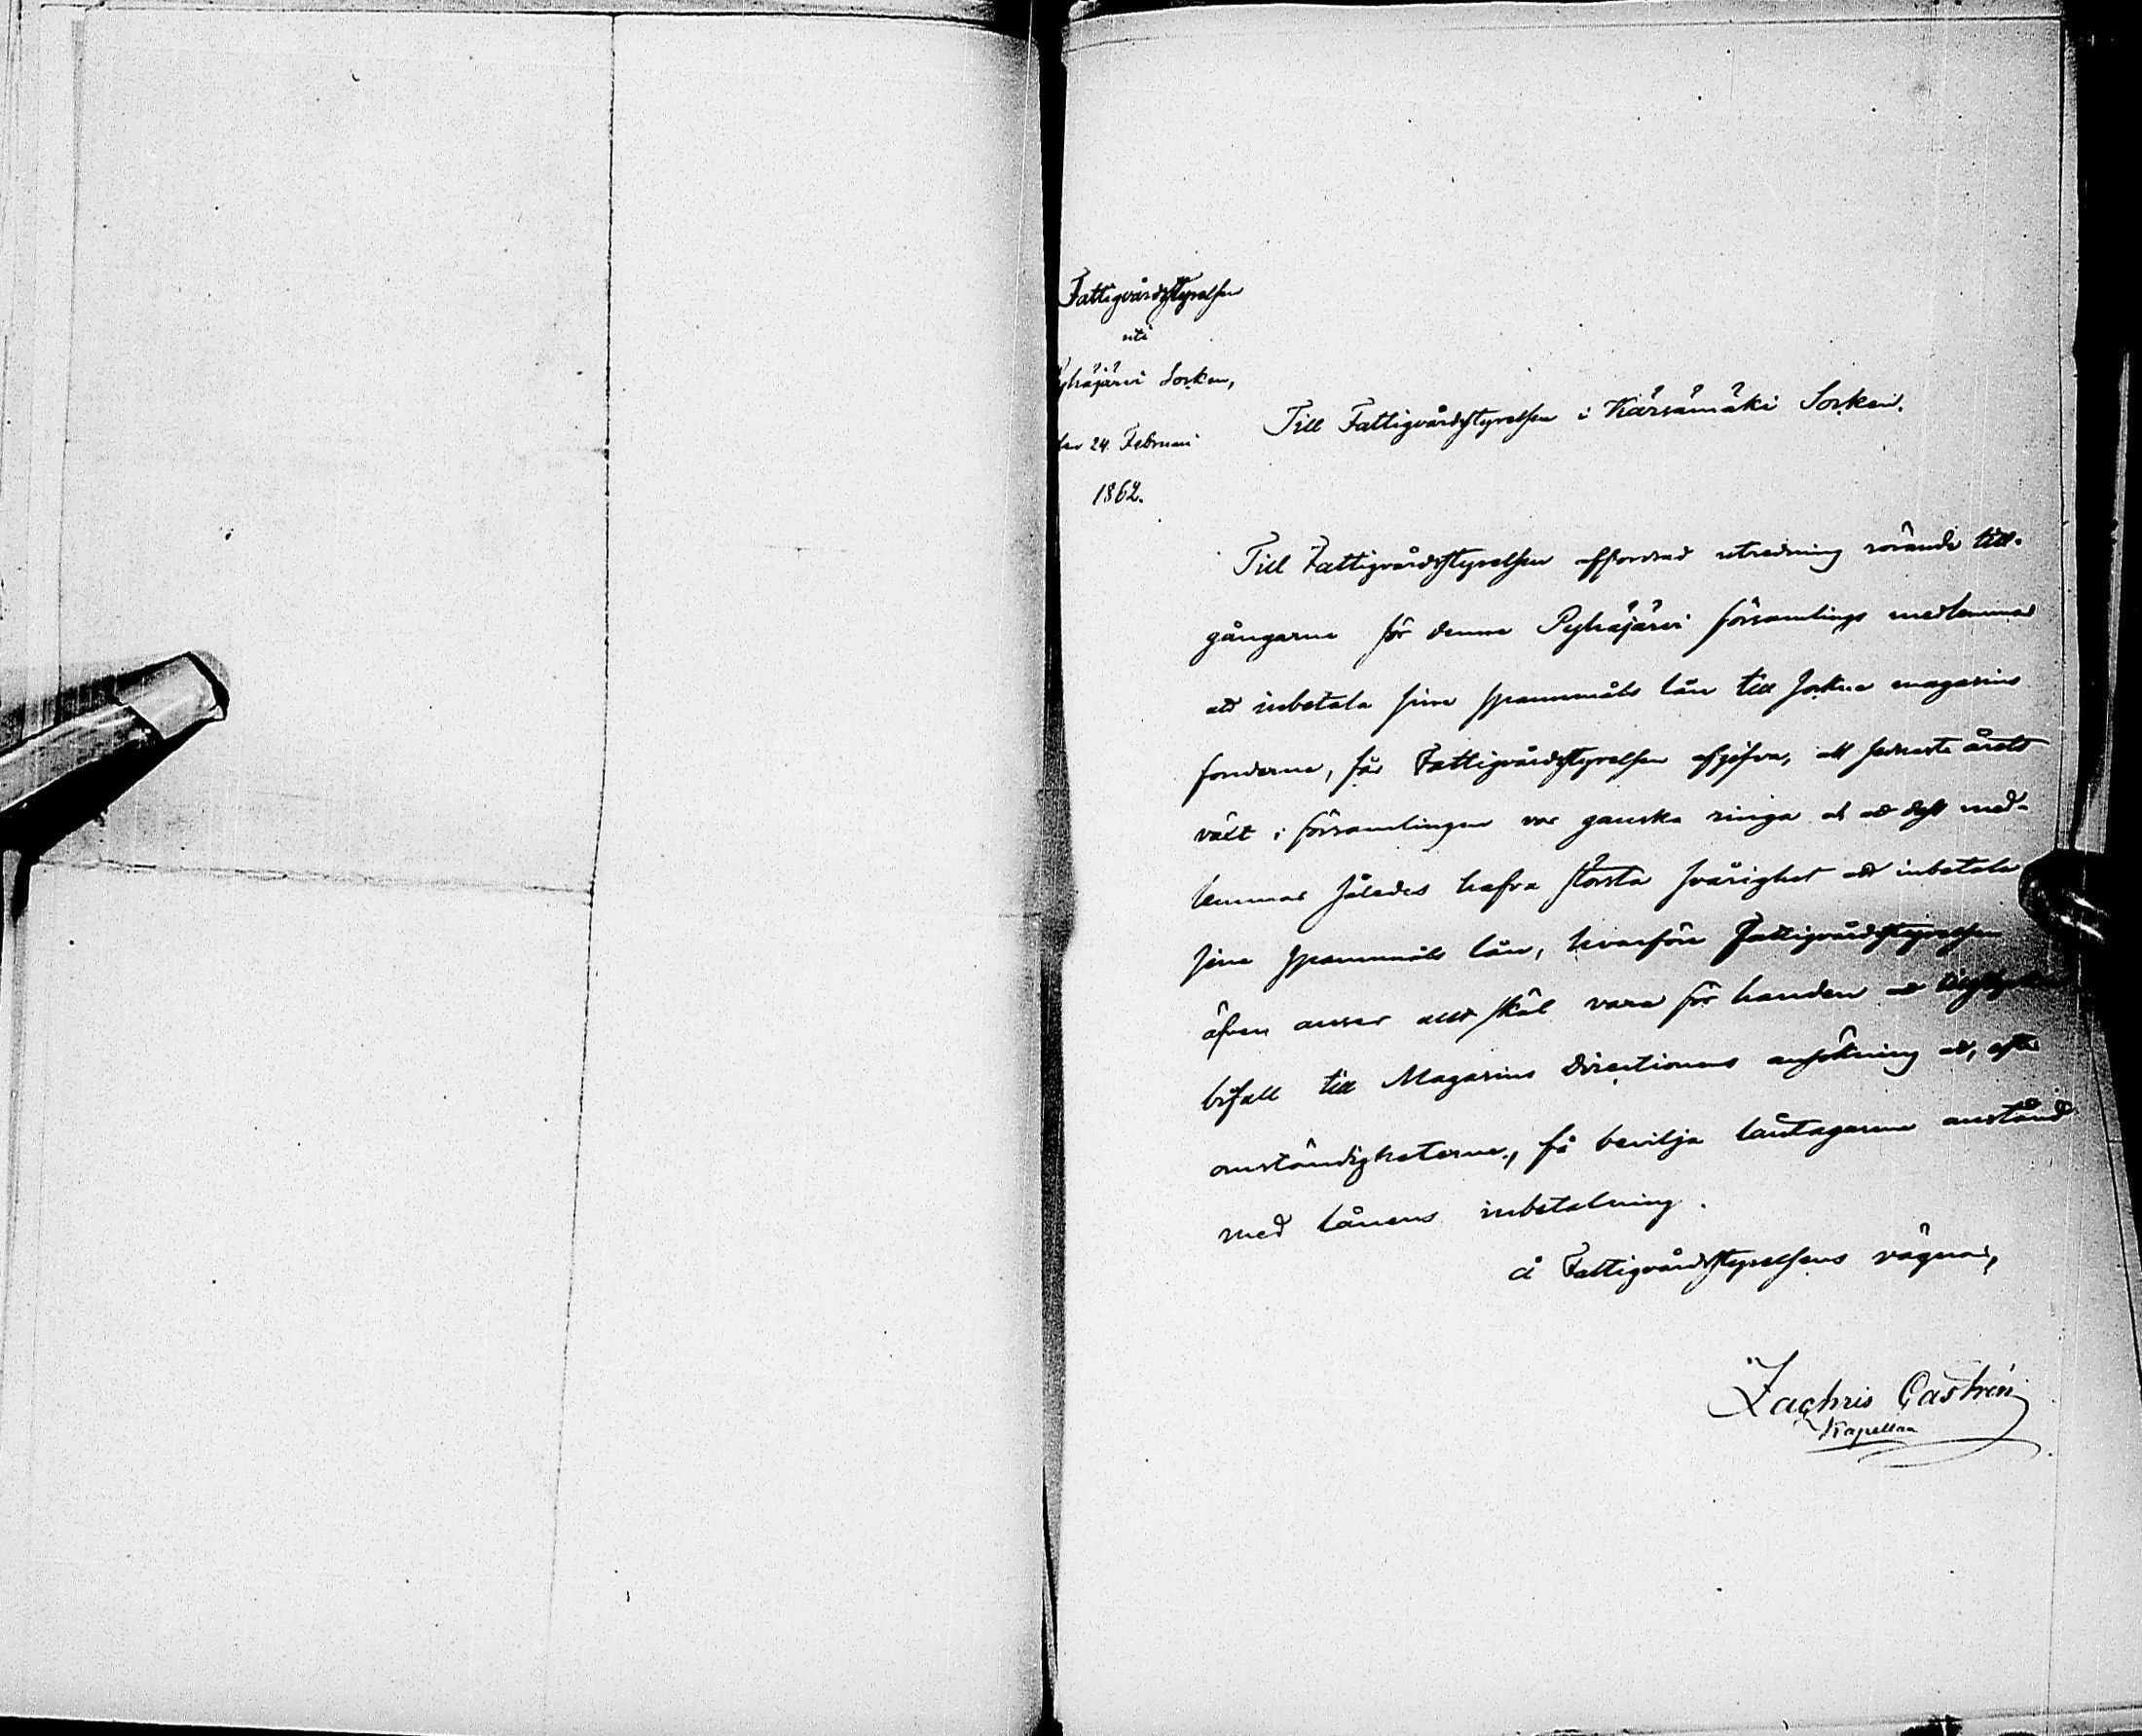 Fattigvårdsstyrelsen
uti
Pyhäjärvi Socken,
den 24 Februari
1862.
Till Fattigvårdsstyrelsen i Kärsämäki Socken.
Till Fattigvårdsstyrelsen affordrad utredning rörande till-
gångarne för denne Pyhäjärvi församlings medlemmar
att inbetala sine spannmåls lån till sockne magasins
fonderne, får Fattigvårdsstyrelsen afgifva, att senaste årets
växt i församlingen var ganska ringa och att dess med-
lemmar således hafva största svårighet att inbetala
sine spannmåls lån, hvarföre Fattigvårdsstyrelsen
äfven anser allt skäl vara för handen att tillstyrka
bifall till Magasins Directionens ansökning att, efter
omständigheterne, få bevilja låntagarne anstånd
med lånens inbetalning.
å Fattigvårdsstyrelsens vägnar,
Zachris Castrén
Kapellan